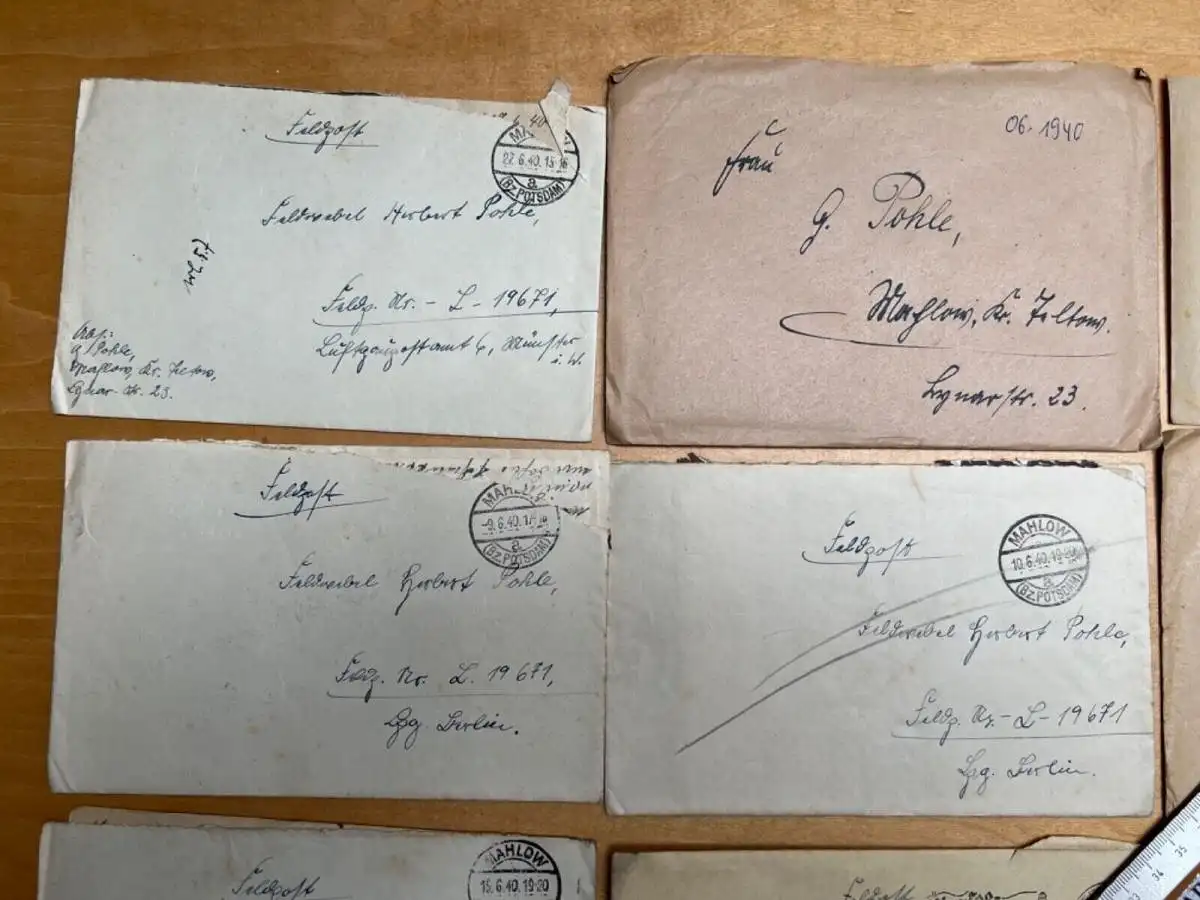 Feldpost
MAHLOW
22.6.40.15-16
a
(BZ.POTSDAM)
Feldwebel Herbert Pohle,
Feldp. Nr. - L - 19671,
Luftgaupostamt 6, Münster
i. W.
Abs.:
G. Pohle,
Mahlow, Kr. Teltow,
Lynar-Str. 23.
06.1940
Frau
G. Pohle,
Mahlow, Kr. Teltow.
Lynarstr. 23.
Feldpost
MAHLOW
-9.6.40.
a
(BZ.POTSDAM)
Feldwebel Herbert Pohle,
Feldp. Nr. L. 19671,
Lgg. Berlin.
Feldpost
MAHLOW
10.6.40.19-20
a
(BZ.POTSDAM)
Feldwebel Herbert Pohle,
Feldp. Nr. - L - 19671
Lgg. Berlin.
Feldpost
MAHLOW
15.6.40.19-20
Feldpost
34
35